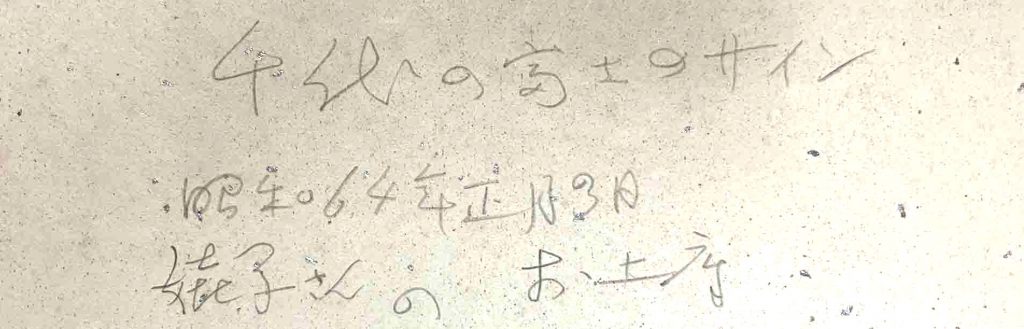 千代の富士のサイン
昭和64年正月3日
子さんの お土产